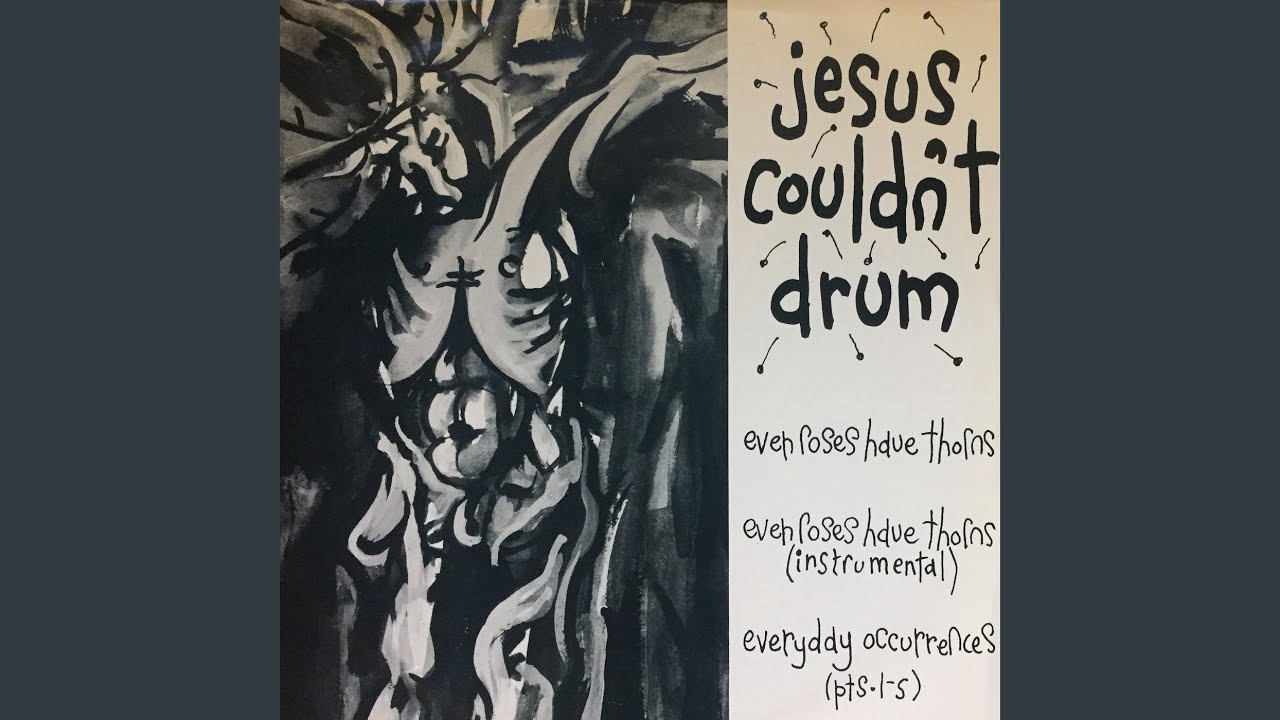 jesus
couldn't
drum
even roses have thorns
even roses have thorns
(instrumental)
everyday occurrences
(pts.1-5)